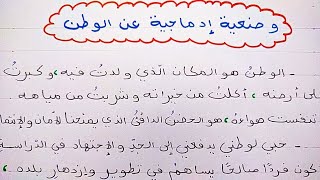 وضعية إدماجية عن الوطن
- الوطن هو المكان الّذي ولدتُ فيه، وكبرتُ
على أرضه، أكلتُ من خيراته وشربتُ من مياهه
تنفست هواءه، هو الحضن الدافئ الذي يمنحنا الأمان والانتماء
- حبي لوطني يدفعني إلى الجدّ والاجتهاد في الدّراسة
كون فردًا صالحًا يساهم في تطوير وازدهار بلده،